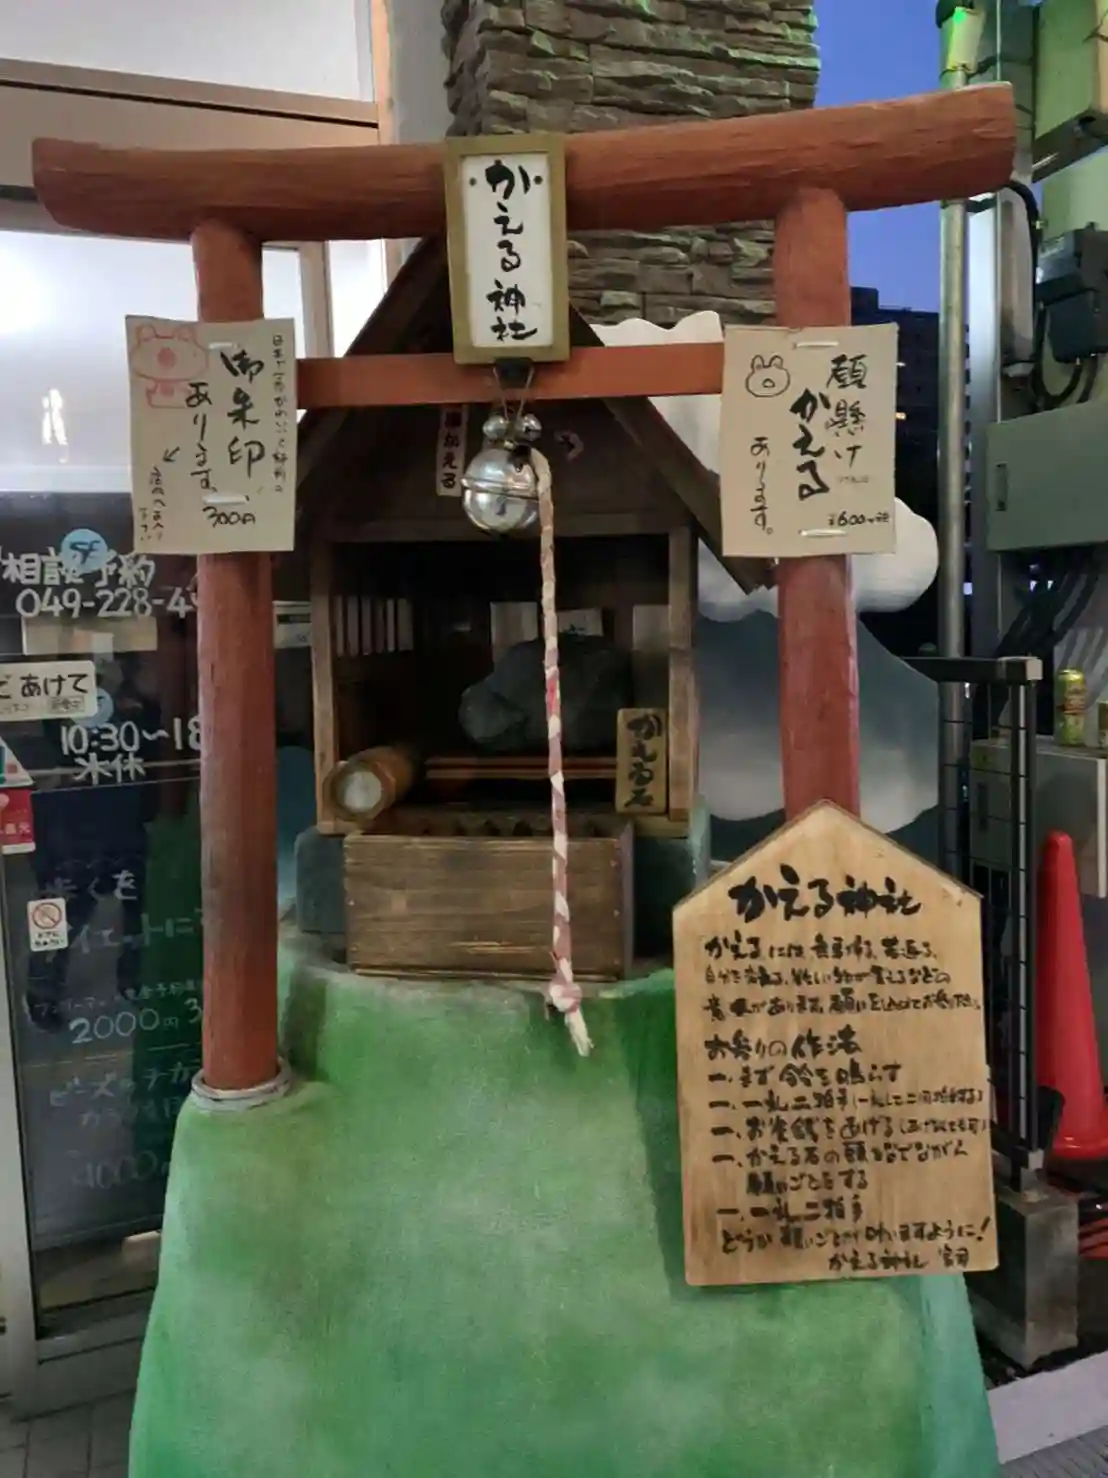 かえる神社
日本で一番かわいい
御朱印
あります。
300円
願懸け
かえる
あります。
¥600
かえる石
相談予約
049-228-4
どあけて
10:30〜18
水休
2000円
かえる神社
かえるには、無事帰る、若返る、
意味があります。願いを込めてお参り下さい。
お参りの作法
一、まず鈴を鳴らす
一、一礼二拍手(一礼して二回拍手する)
一、お賽銭をあげる(あげなくても可)
一、かえる石の頭をなでながら
願いごとをする
一、一礼二拍手
どうか願いごとが叶いますように!
かえる神社 宮司